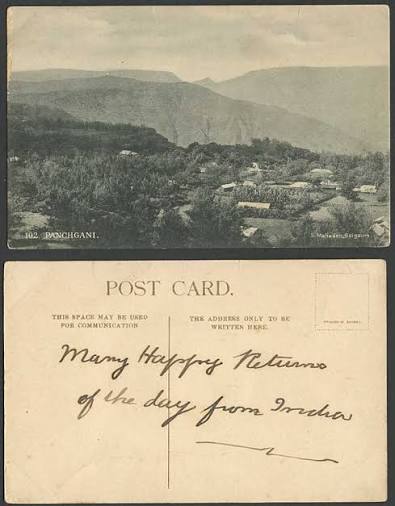 102. PANCHGANI.
S. Mahadeo, Belgaum
POST CARD.
THIS SPACE MAY BE USED
FOR COMMUNICATION
THE ADDRESS ONLY TO BE
WRITTEN HERE.
Many Happy Returns
of the day from India